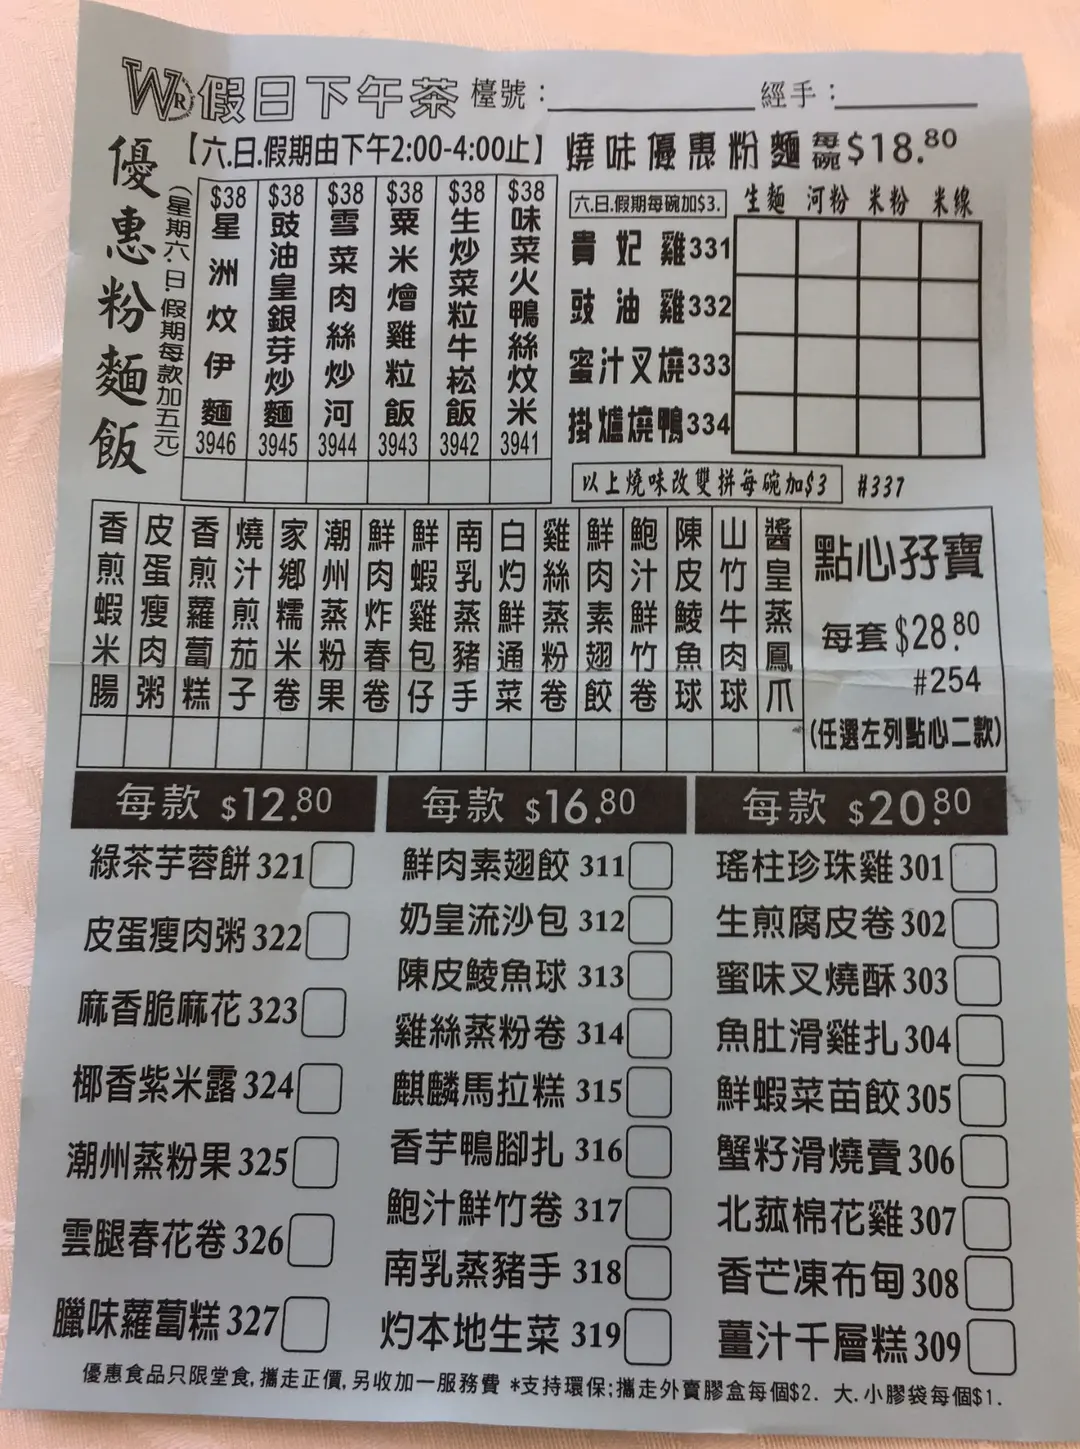 WR 假日下午茶 檯號： 經手：
優惠粉麵飯
(星期六.日.假期每款加五元)
【六.日.假期由下午2:00-4:00止】
$38 星洲炆伊麵 3946
$38 豉油皇銀芽炒麵 3945
$38 雪菜肉絲炒河 3944
$38 粟米燴雞粒飯 3943
$38 生炒菜粒牛崧飯 3942
$38 味菜火鴨絲炆米 3941
燒味優惠粉麵 每碗 $18.80
六.日.假期每碗加$3.
生麵 河粉 米粉 米線
貴妃雞331
豉油雞332
蜜汁叉燒333
掛爐燒鴨334
以上燒味改雙拼每碗加$3 #337
香煎蝦米腸
皮蛋瘦肉粥
香煎蘿蔔糕
燒汁煎茄子
家鄉糯米卷
潮州蒸粉果
鮮肉炸春卷
鮮蝦雞包仔
南乳蒸豬手
白灼鮮通菜
雞絲蒸粉卷
鮮肉素翅餃
鮑汁鮮竹卷
陳皮鯪魚球
山竹牛肉球
醬皇蒸鳳爪
點心孖寶
每套 $28.80
#254
(任選左列點心二款)
每款 $12.80
綠茶芋蓉餅 321
皮蛋瘦肉粥 322
麻香脆麻花 323
椰香紫米露 324
潮州蒸粉果 325
雲腿春花卷 326
臘味蘿蔔糕 327
每款 $16.80
鮮肉素翅餃 311
奶皇流沙包 312
陳皮鯪魚球 313
雞絲蒸粉卷 314
麒麟馬拉糕 315
香芋鴨腳扎 316
鮑汁鮮竹卷 317
南乳蒸豬手 318
灼本地生菜 319
每款 $20.80
瑤柱珍珠雞 301
生煎腐皮卷 302
蜜味叉燒酥 303
魚肚滑雞扎 304
鮮蝦菜苗餃 305
蟹籽滑燒賣 306
北菰棉花雞 307
香芒凍布甸 308
薑汁千層糕 309
優惠食品只限堂食,攜走正價,另收加一服務費 *支持環保;攜走外賣膠盒每個$2. 大.小膠袋每個$1.